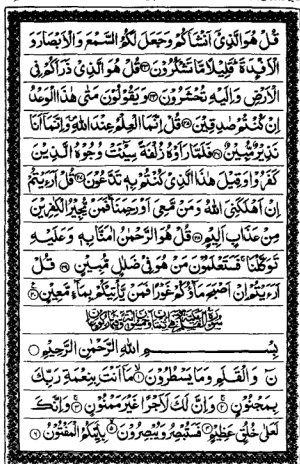 قُلْ هُوَ الَّذِيْٓ اَنْشَاَكُمْ وَجَعَلَ لَكُمُ السَّمْعَ وَالْاَبْصَارَ وَ
الْاَفْـِٕدَةَ قَلِيْلًا مَّا تَشْكُرُوْنَ ۲۳ قُلْ هُوَ الَّذِيْ ذَرَاَكُمْ فِي
الْاَرْضِ وَاِلَيْهِ تُحْشَرُوْنَ ۲۴ وَيَقُوْلُوْنَ مَتٰى هٰذَا الْوَعْدُ
اِنْ كُنْتُمْ صٰدِقِيْنَ ۲۵ قُلْ اِنَّمَا الْعِلْمُ عِنْدَ اللّٰهِ وَاِنَّمَآ اَنَا
نَذِيْرٌ مُّبِيْنٌ ۲۶ فَلَمَّا رَاَوْهُ زُلْفَةً سِيْٓـَٔتْ وُجُوْهُ الَّذِيْنَ
كَفَرُوْا وَقِيْلَ هٰذَا الَّذِيْ كُنْتُمْ بِهٖ تَدَّعُوْنَ ۲۷ قُلْ اَرَءَيْتُمْ
اِنْ اَهْلَكَنِيَ اللّٰهُ وَمَنْ مَّعِيَ اَوْ رَحِمَنَا فَمَنْ يُّجِيْرُ الْكٰفِرِيْنَ
مِنْ عَذَابٍ اَلِيْمٍ ۲۸ قُلْ هُوَ الرَّحْمٰنُ اٰمَنَّا بِهٖ وَعَلَيْهِ
تَوَكَّلْنَا فَسَتَعْلَمُوْنَ مَنْ هُوَ فِيْ ضَلٰلٍ مُّبِيْنٍ ۲۹ قُلْ
اَرَءَيْتُمْ اِنْ اَصْبَحَ مَآؤُكُمْ غَوْرًا فَمَنْ يَّاْتِيْكُمْ بِمَآءٍ مَّعِيْنٍ ۳۰
بِسْمِ اللّٰهِ الرَّحْمٰنِ الرَّحِيْمِ
نٓ وَالْقَلَمِ وَمَا يَسْطُرُوْنَ ۱ مَآ اَنْتَ بِنِعْمَةِ رَبِّكَ
بِمَجْنُوْنٍ ۲ وَاِنَّ لَكَ لَاَجْرًا غَيْرَ مَمْنُوْنٍ ۳ وَاِنَّكَ
لَعَلٰى خُلُقٍ عَظِيْمٍ ۴ فَسَتُبْصِرُ وَيُبْصِرُوْنَ ۵ بِاَيِّكُمُ الْمَفْتُوْنُ ۶